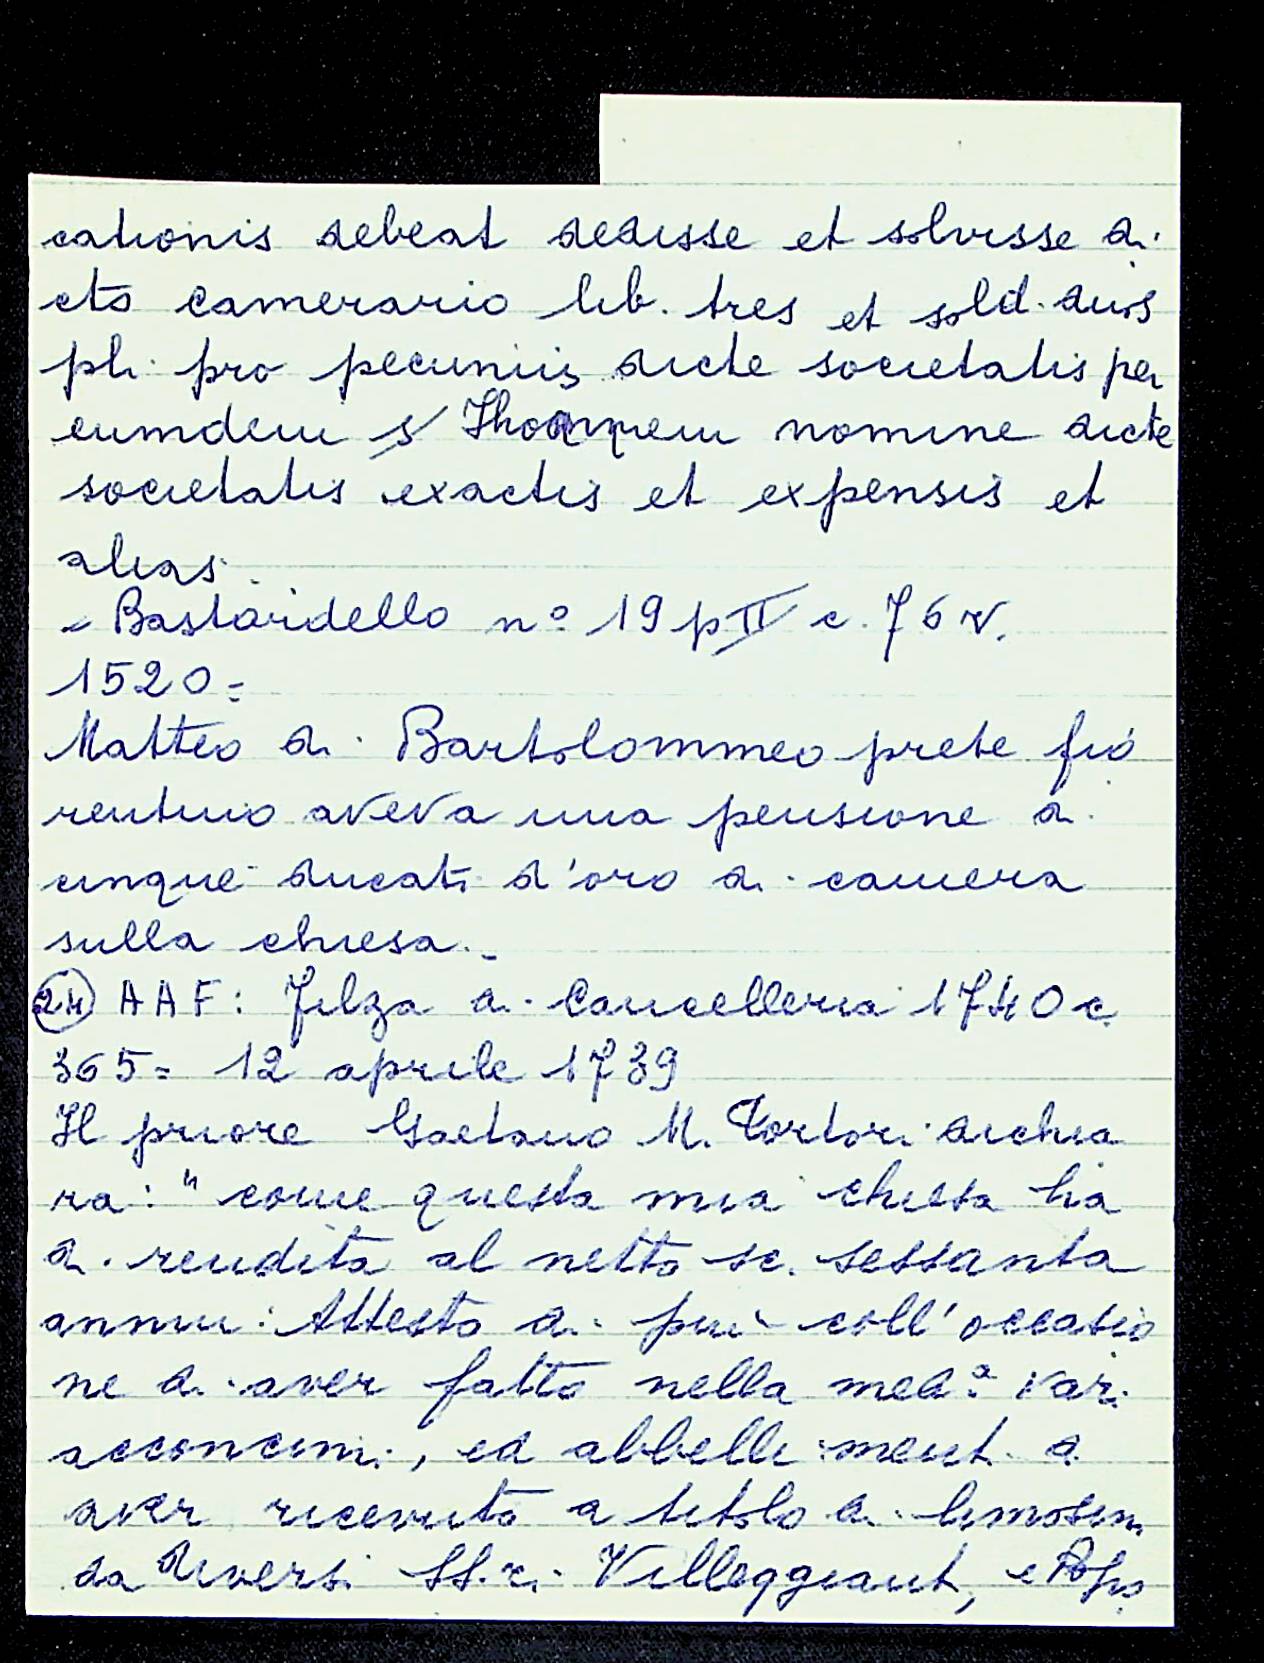 cationis debeat dedisse et solvisse di
cto camerario lib. tres et sold. duos
pli. pro pecuniis dicte societatis per
eumdem s/ Jhoannem nomine dicte
societatis exactis et expensis et
alias.
- Bastardello n° 19 p II c. 76 v.
1520=
Matteo di Bartolommeo prete fio
rentino aveva una pensione di
cinque ducati d'oro di camera
sulla chiesa.-
(24) AAF: Filza di Cancelleria 1740 c.
365= 12 aprile 1739
Il priore Gaetano M. Tortori dichia
ra: "come questa mia chiesa ha
di rendita al netto sc. sessanta
annui: Attesto di più coll'occasio
ne di aver fatto nella med.a vari
acconcimi, ed abbellimenti di
aver ricevuto a titolo di limosin
da diversi SS.ri Villeggianti, e Popo